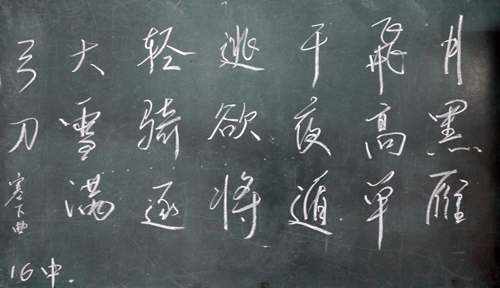 月黑雁
飛高单
于夜遁
逃欲将
轻骑逐
大雪满
弓刀
塞下曲
16中.